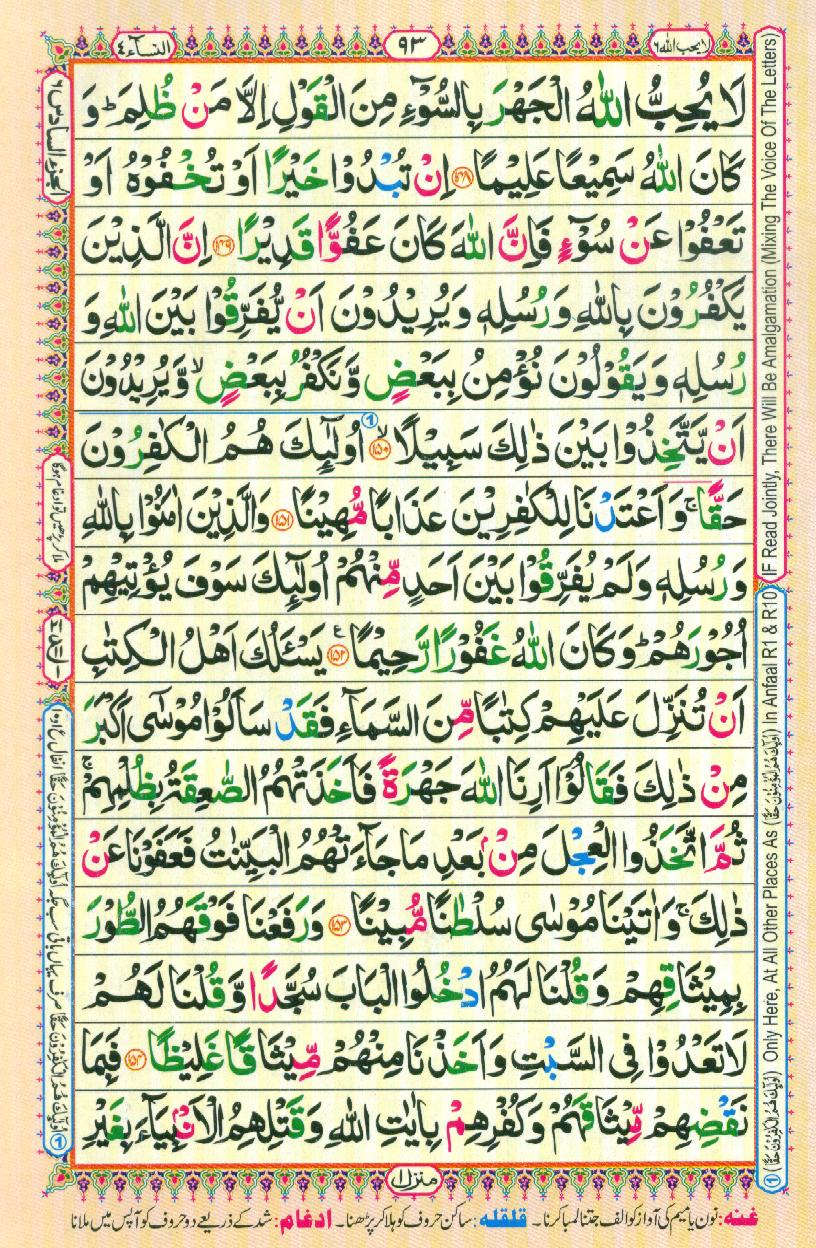 لا یحب اللہ ٦
٩٣
النسآء ٤
لَا یُحِبُّ اللّٰهُ الْجَهْرَ بِالسُّوْٓءِ مِنَ الْقَوْلِ اِلَّا مَنْ ظُلِمَ ؕ وَ
كَانَ اللّٰهُ سَمِیْعًا عَلِیْمًا ﴿۱۴۸﴾ اِنْ تُبْدُوْا خَیْرًا اَوْ تُخْفُوْهُ اَوْ
تَعْفُوْا عَنْ سُوْٓءٍ فَاِنَّ اللّٰهَ كَانَ عَفُوًّا قَدِیْرًا ﴿۱۴۹﴾ اِنَّ الَّذِیْنَ
یَكْفُرُوْنَ بِاللّٰهِ وَ رُسُلِهٖ وَ یُرِیْدُوْنَ اَنْ یُّفَرِّقُوْا بَیْنَ اللّٰهِ وَ
رُسُلِهٖ وَ یَقُوْلُوْنَ نُؤْمِنُ بِبَعْضٍ وَّ نَكْفُرُ بِبَعْضٍ ۙ وَّ یُرِیْدُوْنَ
اَنْ یَّتَّخِذُوْا بَیْنَ ذٰلِكَ سَبِیْلًا ۙ﴿۱۵۰﴾ 1 اُولٰٓىِٕكَ هُمُ الْكٰفِرُوْنَ
حَقًّا ۚ وَ اَعْتَدْنَا لِلْكٰفِرِیْنَ عَذَابًا مُّهِیْنًا ﴿۱۵۱﴾ وَ الَّذِیْنَ اٰمَنُوْا بِاللّٰهِ
وَ رُسُلِهٖ وَ لَمْ یُفَرِّقُوْا بَیْنَ اَحَدٍ مِّنْهُمْ اُولٰٓىِٕكَ سَوْفَ یُؤْتِیْهِمْ
اُجُوْرَهُمْ ؕ وَ كَانَ اللّٰهُ غَفُوْرًا رَّحِیْمًا ﴿۱۵۲﴾ ع یَسْـَٔلُكَ اَهْلُ الْكِتٰبِ
اَنْ تُنَزِّلَ عَلَیْهِمْ كِتٰبًا مِّنَ السَّمَآءِ فَقَدْ سَاَلُوْا مُوْسٰۤى اَكْبَرَ
مِنْ ذٰلِكَ فَقَالُوْۤا اَرِنَا اللّٰهَ جَهْرَةً فَاَخَذَتْهُمُ الصّٰعِقَةُ بِظُلْمِهِمْ ۚ
ثُمَّ اتَّخَذُوا الْعِجْلَ مِنْۢ بَعْدِ مَا جَآءَتْهُمُ الْبَیِّنٰتُ فَعَفَوْنَا عَنْ
ذٰلِكَ ۚ وَ اٰتَیْنَا مُوْسٰى سُلْطٰنًا مُّبِیْنًا ﴿۱۵۳﴾ وَ رَفَعْنَا فَوْقَهُمُ الطُّوْرَ
بِمِیْثَاقِهِمْ وَ قُلْنَا لَهُمُ ادْخُلُوا الْبَابَ سُجَّدًا وَّ قُلْنَا لَهُمْ
لَا تَعْدُوْا فِی السَّبْتِ وَ اَخَذْنَا مِنْهُمْ مِّیْثَاقًا غَلِیْظًا ﴿۱۵۴﴾ فَبِمَا
نَقْضِهِمْ مِّیْثَاقَهُمْ وَ كُفْرِهِمْ بِاٰیٰتِ اللّٰهِ وَ قَتْلِهِمُ الْاَنْۢبِیَآءَ بِغَیْرِ
منزل ۱
غنہ: نون یا میم کی آواز کو الف جتنا لمبا کرنا۔ قلقلہ: ساکن حروف کو ہلا کر پڑھنا۔ ادغام: شد کے ذریعے دو حروف کو آپس میں ملانا
(IF Read Jointly, There Will Be Amalgamation (Mixing The Voice Of The Letters)
1 (اُولٰٓىِٕكَ هُمُ الْكٰفِرُوْنَ حَقًّا) Only Here, At All Other Places As (اُولٰٓىِٕكَ هُمُ الْمُؤْمِنُوْنَ حَقًّا) In Anfaal R1 & R10
الجزء السادس ٦